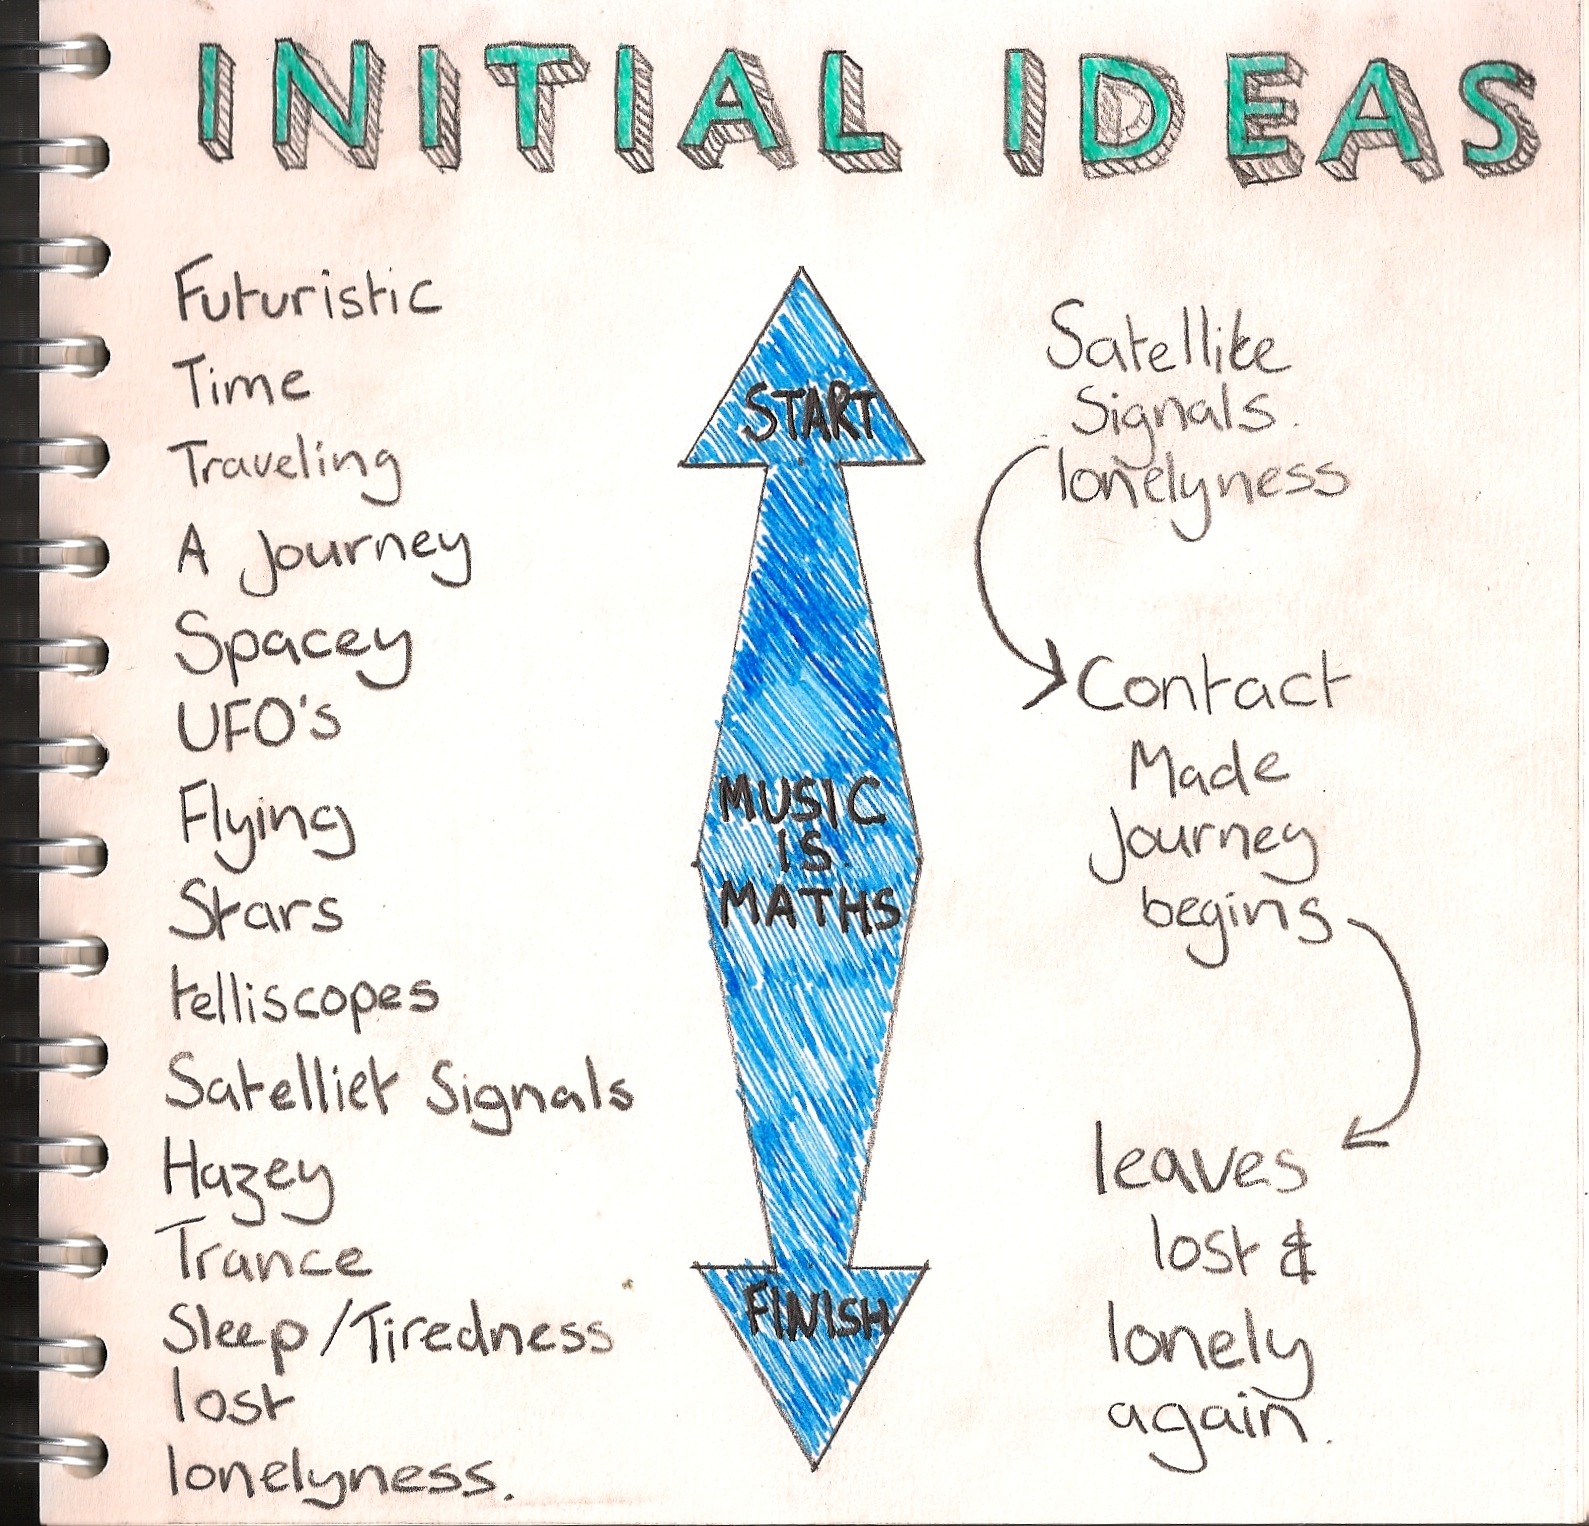 INITIAL IDEAS
Futuristic
Time
Traveling
A Journey
Spacey
UFO's
Flying
Stars
telliscopes
Satelliet Signals
Hazey
Trance
Sleep/Tiredness
lost
lonelyness.
START
MUSIC
IS
MATHS
FINISH
Satellite
Signals.
lonelyness
Contact
Made
Journey
begins
leaves
lost &
lonely
again.